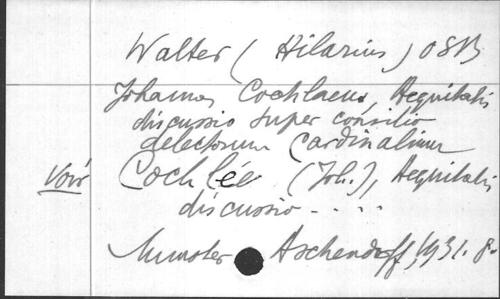 Walter (Hilarius) OSB
Johannes Cochlaeus, Aequitatis
discussio super consilio
delectorum Cardinalium
Voir Cochlée (Joh.), Aequitatis
discussio....
Munster Aschendorff, 1931. 8.